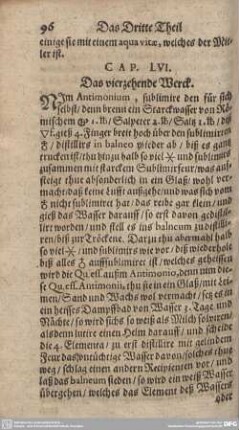 96 Das Dritte Theil
einige sie mit einem aqua vitæ, welches der Mit-
ler ist.
CAP. LVI.
Das vierzehende Werck.
NIm Antimonium, sublimire den für sich
selbst/ denn brenn ein Starckwasser von Rö-
mischem 1. lb/ Salpeter 4. lb/ Saltz 1. lb/ diß
gieß 4. Finger breit hoch über den sublimirten
/ distillirs in balneo wieder ab/ biß es gantz
trucken ist/ thu hinzu halb so viel und sublimirs
zusammen mit starckem Sublimirfeur/ was auff-
steiget thue absonderlich in ein Glaß/ wohl ver-
macht/ daß keine Lufft außgehe/ und was sich vom
nicht sublimiret hat/ das reibe gar klein/ und
gieß das Wasser darauff/ so erst davon gedistil-
lirt worden/ und stell es ins balneum zudistilli-
ren/ biß zur Tröckene. Darzu thu abermahl halb
so viel und sublimirs wie vor/ diß wiederhole
biß alles aufsublimiret ist/ welches geheissen
wird die Qu. eß. auß m Antimonio, denn nim die-
se Qu. eß. Antimonii, thu sie in ein Glaß/ mit Lei-
men/ Sand und Wachs wol vermacht/ setz es in
ein heisses Dampffbad von Wasser 3. Tage und
Nächte/ so wird sichs so weiß als Milch solviren/
alsdenn lutire einen Helm darauff/ und scheide
die 4. Elementa/ zu erst distillire mit gelindem
Feur das unnüchtige Wasser davon/ solches thue
weg/ schlag einen andern Recipienten vor/ und
laß das balneum sieden/ so wird ein weiß Wasser
übergehen/ welches das Element deß Wassers
oder